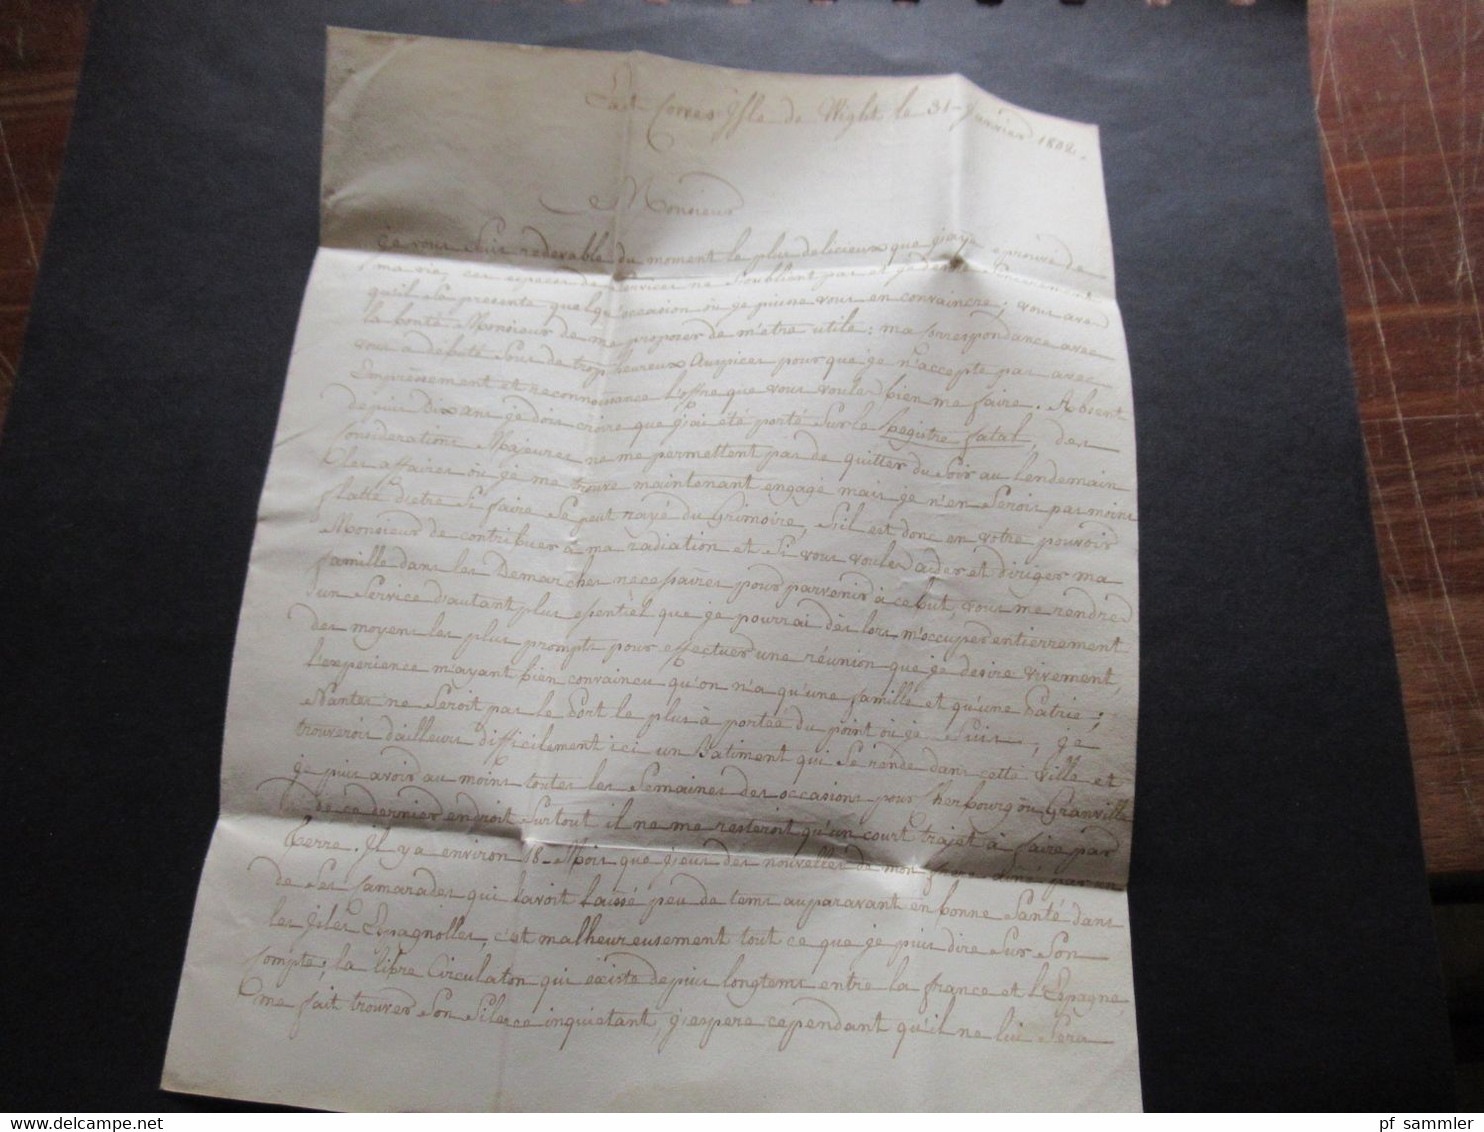 East Cowes Isle de Wight le 31 Janvier 1802.
Monsieur
Je vous suis redevable du moment le plus delicieux que j'aye eprouvé de
ma vie, ces especes de services ne s'oublient pas et je desire
qu'il se presente quelqu'occasion où je puisse vous en convaincre; vous avez
la bonté Monsieur de me proposer de m'etre utile: ma Correspondance avec
vous a débuté sous de trop heureux Auspices pour que je n'accepte pas avec
Empressement et reconnoissance l'offre que vous voulez bien me faire. Absent
depuis Dix ans je dois croire que j'ai été porté sur le Registre fatal, des
Considerations Majeures ne me permettent pas de quitter du soir au lendemain
les affaires où je me trouve maintenant engagé mais je n'en serois pas moins
flatté d'etre si faire se peut rayé du Grimoire, s'il est donc en votre pouvoir
Monsieur de contribuer à ma radiation et si vous voulez aider et diriger ma
famille dans les Demarches necessaires pour parvenir à ce but, vous me rendrez
un service d'autant plus essentiel que je pourrai dès lors m'occuper entierrement
des moyens les plus prompts pour effectuer une réunion que je desire vivement,
l'experience m'ayant bien convaincu qu'on n'a qu'une famille et qu'une Patrie;
Nantes ne seroit pas le Port le plus à portée du point où je suis, je
trouverois d'ailleurs difficilement ici un Batiment qui se rende dans cette ville et
je puis avoir au moins toutes les semaines des occasions pour Cherbourg ou Granville
de ce dernier endroit surtout il ne me resteroit qu'un court trajet à faire par
Terre. Il y a environ 18 Mois que j'eus des nouvelles de mon frere ainé par un
de ses Camarades qui l'avoit laissé peu de tems auparavant en bonne santé dans
les Isles Espagnolles, c'est malheureusement tout ce que je puis dire sur son
Compte; la libre Circulaton qui existe depuis longtems entre la france et l'Espagne,
me fait trouver son silence inquietant, j'espere cependant qu'il ne lui sera